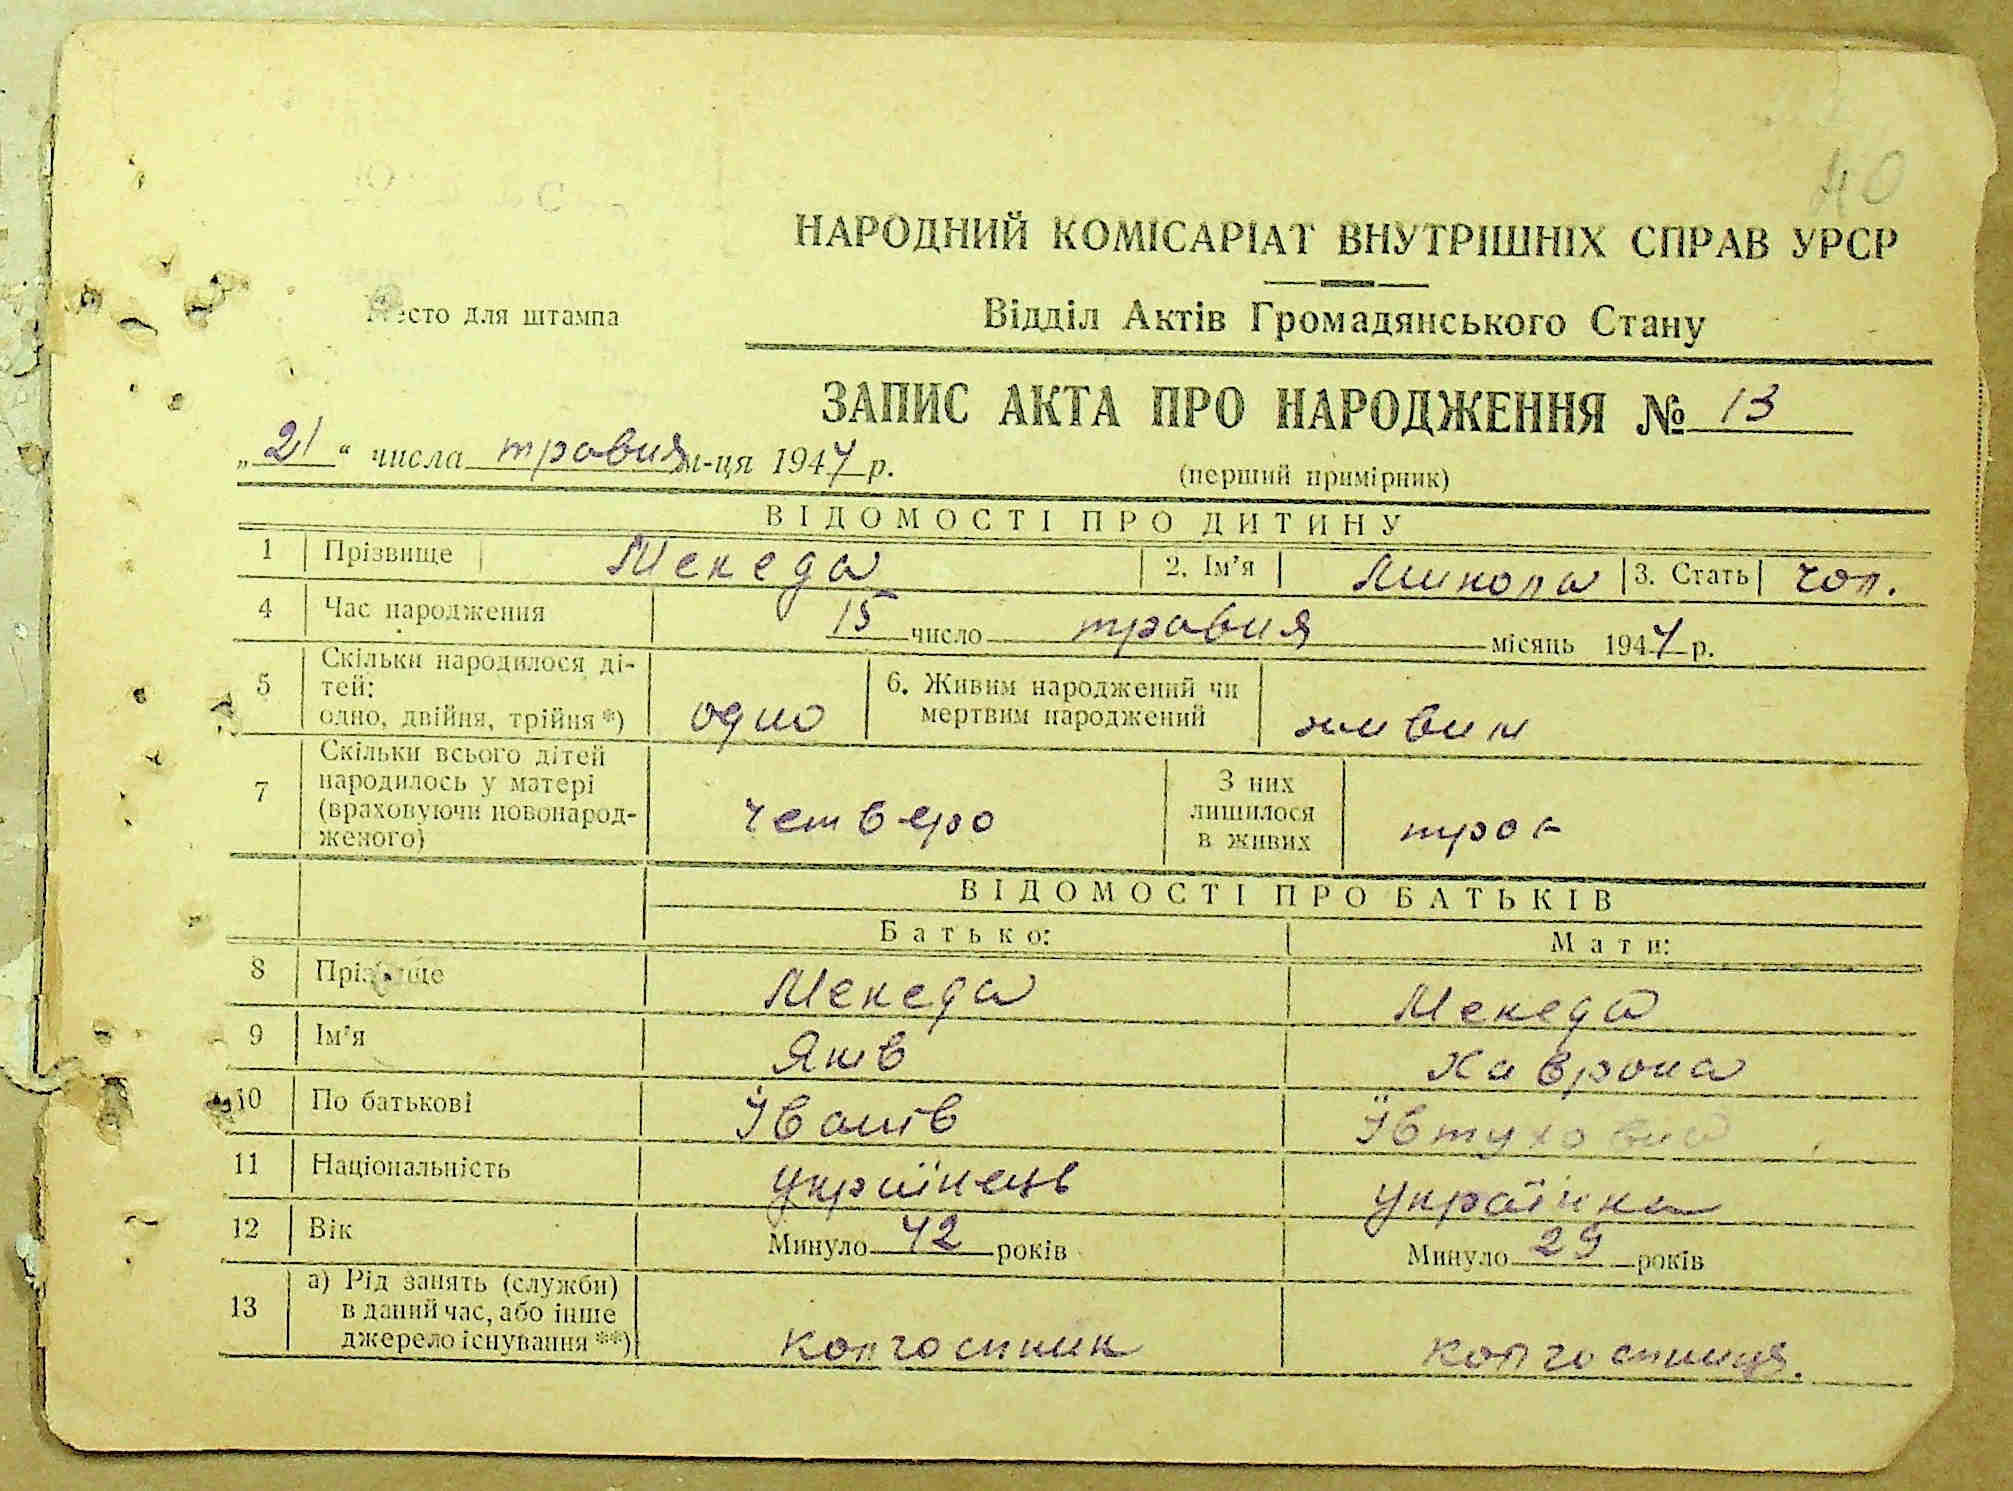 40
НАРОДНИЙ КОМІСАРІАТ ВНУТРІШНІХ СПРАВ УРСР
Место для штампа
Відділ Актів Громадянського Стану
ЗАПИС АКТА ПРО НАРОДЖЕННЯ № 13
„21“ числа травня м-ця 1947 р.
(перший примірник)
ВІДОМОСТІ ПРО ДИТИНУ
1 Прізвище Мекеда 2. Ім’я Микола 3. Стать чол.
4 Час народження 15 число травня місяць 1947 р.
5 Скільки народилося ді-
тей:
одно, двійня, трійня*) одно
6. Живим народжений чи
мертвим народжений живим
7 Скільки всього дітей
народилось у матері
(враховуючи новонарод-
женого) четверо
З них
лишилося
в живих троє
ВІДОМОСТІ ПРО БАТЬКІВ
Батько: Мати:
8 Прізвище Мекеда Мекеда
9 Ім’я Яків Хаврона
10 По батькові Іванів Івтуховна
11 Національність українець українка
12 Вік Минуло 42 років Минуло 29 років
13 а) Рід занять (служби)
в даний час, або інше
джерело існування **) колгоспник колгоспниця.